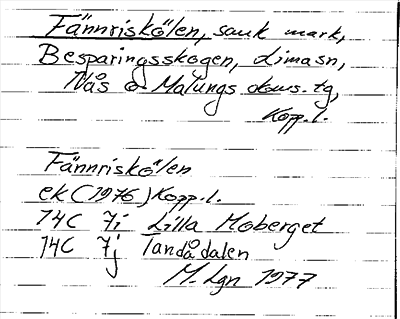 Fännriskölen, sank mark,
Besparingsskogen, Limasn,
Nås o Malungs doms. tg,
Kopp. l.
Fännriskölen
ek (1976) Kopp. l.
14C 7i Lilla Moberget
14C 7j Tandådalen
M. Lgn 1977